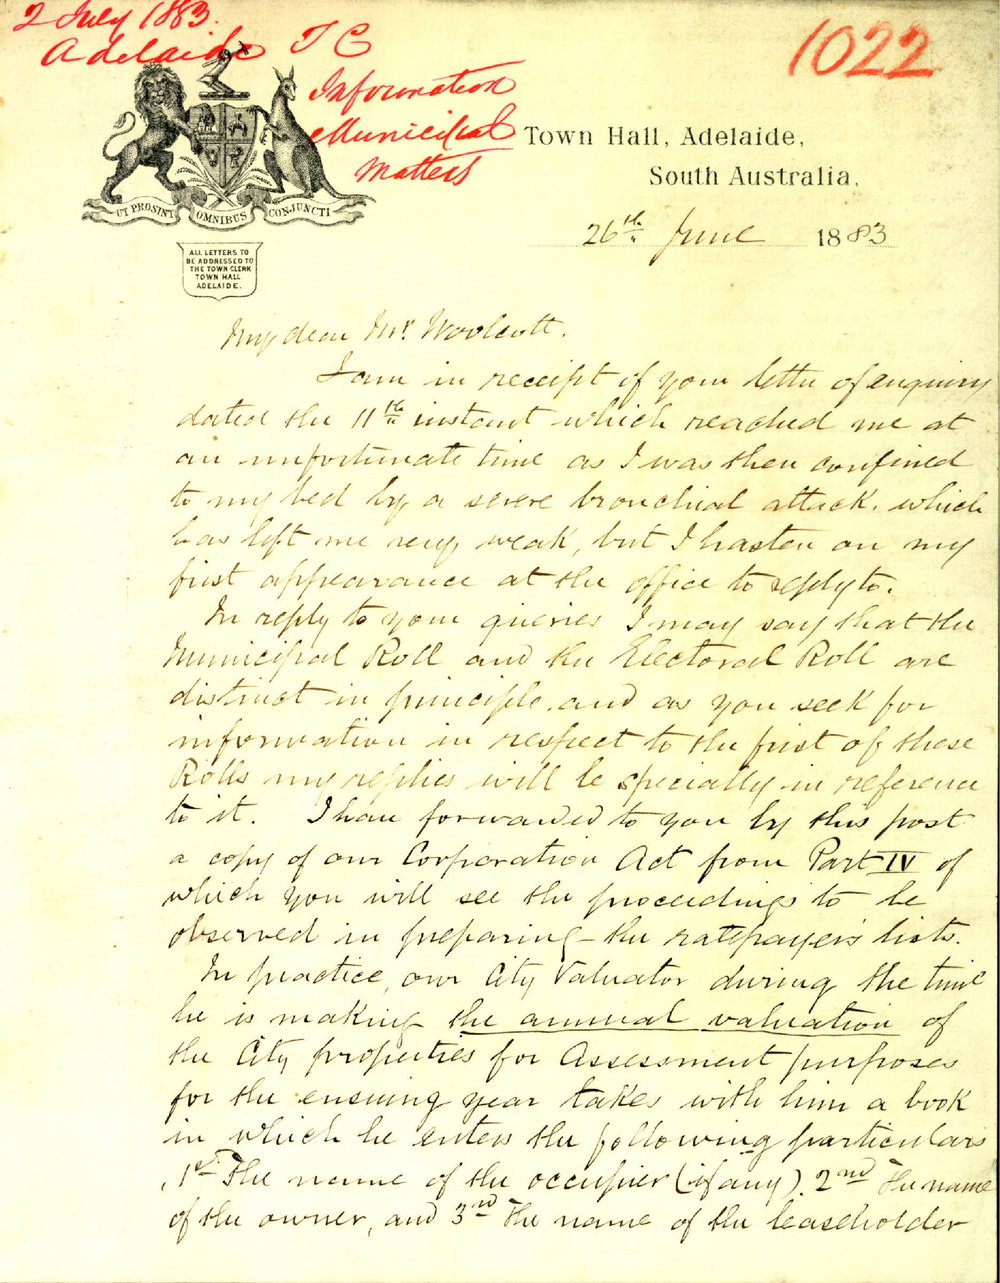 2 July 1883.
Adelaide T C
Information
Municipal
Matters
1022
UT PROSINT OMNIBUS CONJUNCTI
ALL LETTERS TO
BE ADDRESSED TO
THE TOWN CLERK
TOWN HALL
ADELAIDE.
Town Hall, Adelaide,
South Australia,
26th June 1883
My dear Mr. Woolcott.
I am in receipt of your letter of enquiry
dated the 11th instant which reached me at
an unfortunate time as I was then confined
to my bed by a severe bronchial attack. which
has left me very weak, but I hasten on my
first appearance at the office to reply to.
In reply to your queries I may say that the
Municipal Roll and the Electoral Roll are
distinct in principle. and as you seek for
information in respect to the first of these
Rolls my replies will be specially in reference
to it. I have forwarded to you by this post
a copy of our Corporation Act from Part IV of
which you will see the proceedings to be
observed in preparing - the ratepayers' lists.
In practice, our City Valuator during the time
he is making the annual valuation of
the City properties for Assessment purposes
for the ensuing year takes with him a book
in which he enters the following particulars
, 1st The name of the occupier (if any). 2nd The name
of the owner, and 3rd The name of the leaseholder